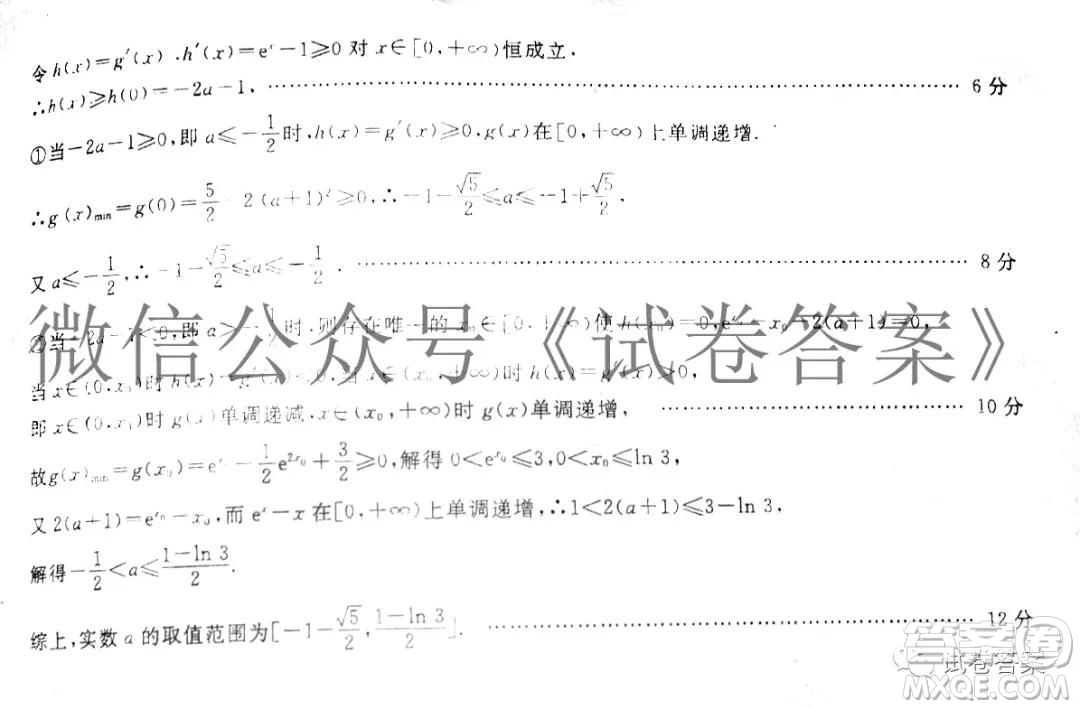 令h(x)=g′(x).h′(x)=eˣ-1≥0对x∈[0,+∞)恒成立.
∴h(x)≥h(0)=-2a-1, 6分
①当-2a-1≥0,即a≤-1/2时,h(x)=g′(x)≥0,g(x)在[0,+∞)上单调递增.
∴g(x)min=g(0)=5/2-2(a+1)²≥0,∴-1-√5/2≤a≤-1+√5/2.
又a≤-1/2,∴-1-√5/2≤a≤-1/2. 8分
②当-2a-1<0,即a>-1/2时,则存在唯一的x₀∈[0,+∞)使h(x₀)=0,e^x₀-x₀-2(a+1)=0,
微信公众号《试卷答案》
当x∈(0,x₀)时h(x)=g′(x) 当x∈(x₀,+∞)时h(x)=g′(x)>0,
即x∈(0,x₀)时g(x)单调递减,x∈(x₀,+∞)时g(x)单调递增, 10分
故g(x)min=g(x₀)=e^x₀-1/2e^2x₀+3/2≥0,解得0<e^x₀≤3,0<x₀≤ln 3,
又2(a+1)=e^x₀-x₀,而eˣ-x在[0,+∞)上单调递增,∴1<2(a+1)≤3-ln 3,
解得-1/2<a≤(1-ln 3)/2.
综上,实数a的取值范围为[-1-√5/2,(1-ln 3)/2]. 12分
答案圈
试卷答案
MXQE.COM